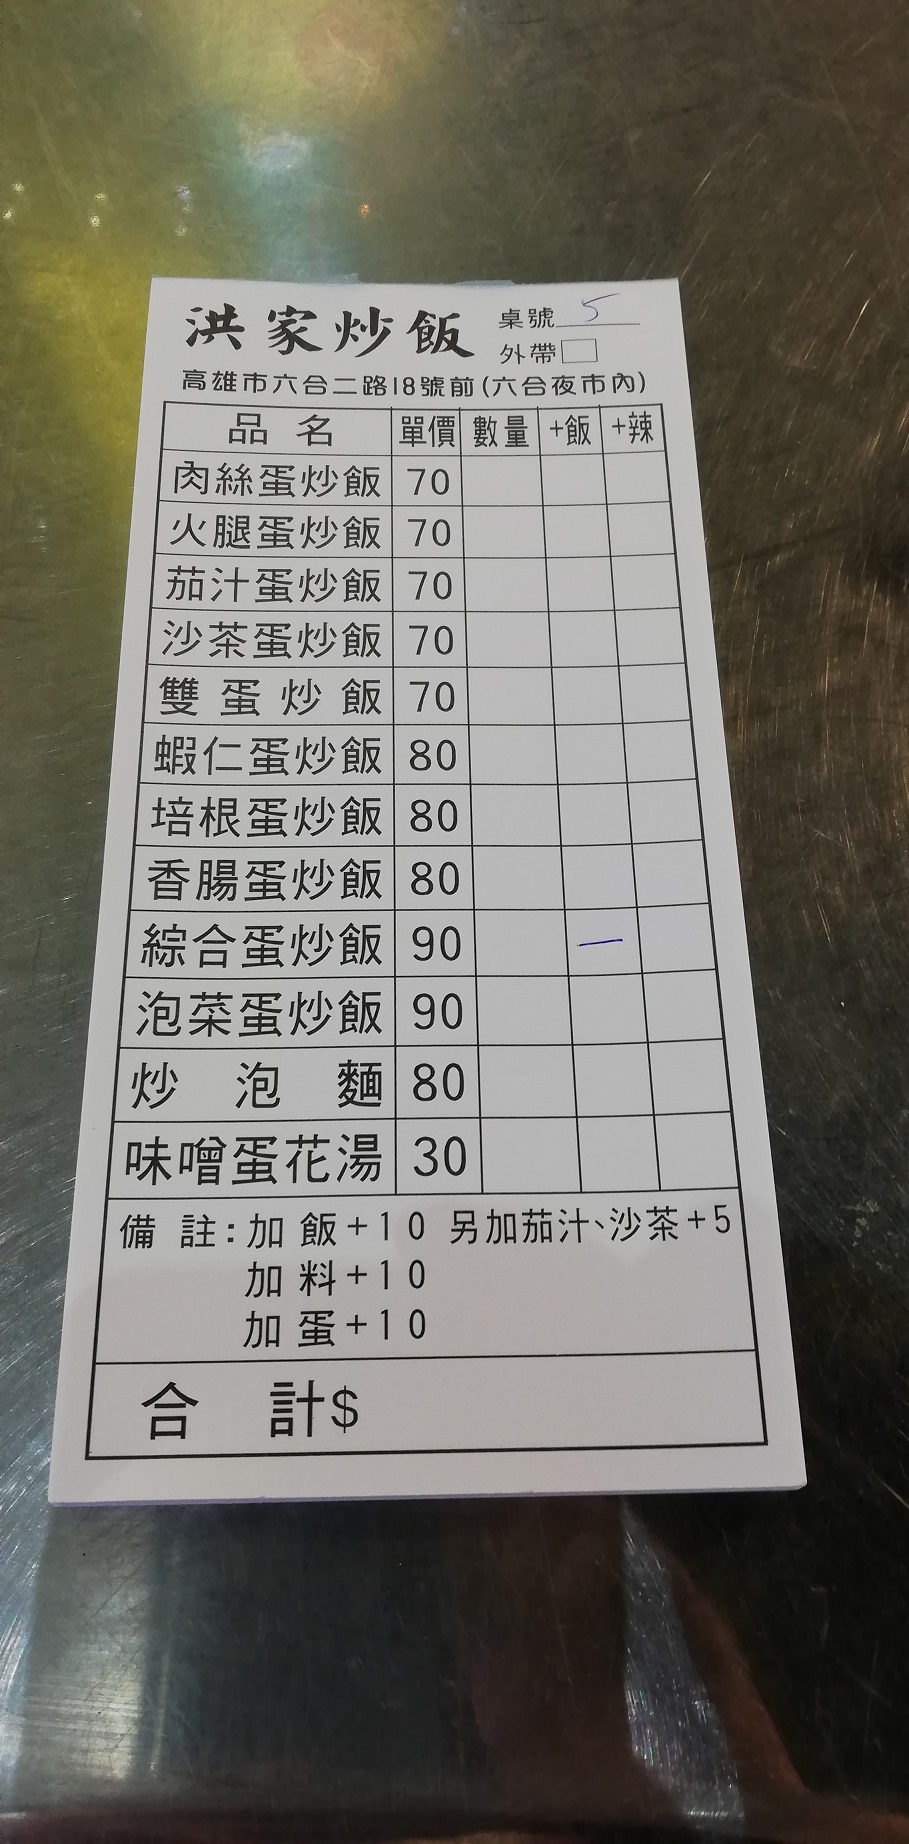 洪家炒飯 桌號 5
外帶□
高雄市六合二路18號前(六合夜市內)
品名 單價 數量 +飯 +辣
肉絲蛋炒飯 70
火腿蛋炒飯 70
茄汁蛋炒飯 70
沙茶蛋炒飯 70
雙蛋炒飯 70
蝦仁蛋炒飯 80
培根蛋炒飯 80
香腸蛋炒飯 80
綜合蛋炒飯 90 一
泡菜蛋炒飯 90
炒泡麵 80
味噌蛋花湯 30
備註:加飯+10 另加茄汁、沙茶+5
加料+10
加蛋+10
合計$